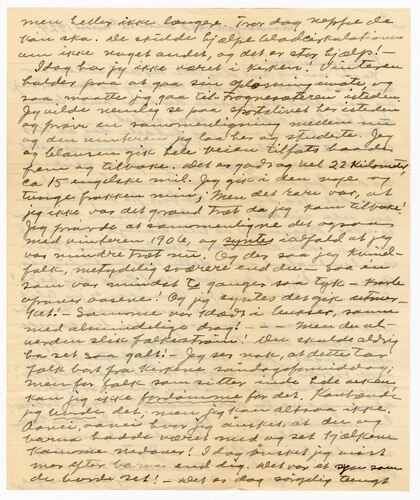 men heller ikke længere. Tror dag neppe de
kan ska. De skulde hjælpe bladcirkulationen
om ikke noget andet, og det er stor hjælp! —
Idag har jeg ikke været i kirken! Vinteren
holder paa at gaa sin opløsning imøte, og
saa maatte jeg gaa til "Frognersæteren" isteden.
Jeg vilde nemlig se paa sportslivet her isteden
og prøve en sammenligning mellem nu
og den vinteren jeg laa her og studerte. Jeg
og gik hele veien tilfots baade
frem og tilbake. Det er god vel 22 kilometer,
ca 15 engelske mil. Jeg gik i den nye og
tunge frakken min, men det rare var, at
jeg ikke var det grand træt da jeg kom tilbake!
Jeg prøvde at sammenligne det ogsaa
med vinteren 1906, og syntes ialfald at jeg
var mindre træt nu. Og der saa jeg kvind-
folk, betydelig sværere end du — saa en
som var mindst to ganger saa tyk —
opover aasene! Og jeg syntes det gik utmer-
ket! — Somme var klædt i bukser, somme
med almindelige drag! — — Men du al-
verden slik folkestrøm! Den skulde aldrig
ha set saa galt! — Jeg ser nok, at dette tar
folk bort fra kirkene søndagsformiddag,
men for folk som sitter inde hele uken,
kan jeg ikke fordømme for det. Kan hænde
jeg burde det; men jeg kan altsaa ikke.
Aanei, aanei hvor jeg ønsket, at du og
barna hadde været med og set
komme nedover! I dag husket jeg mest
mer efter barna end dig. Det var et syn som
de burde set! — Det er dog sørgelig tungt